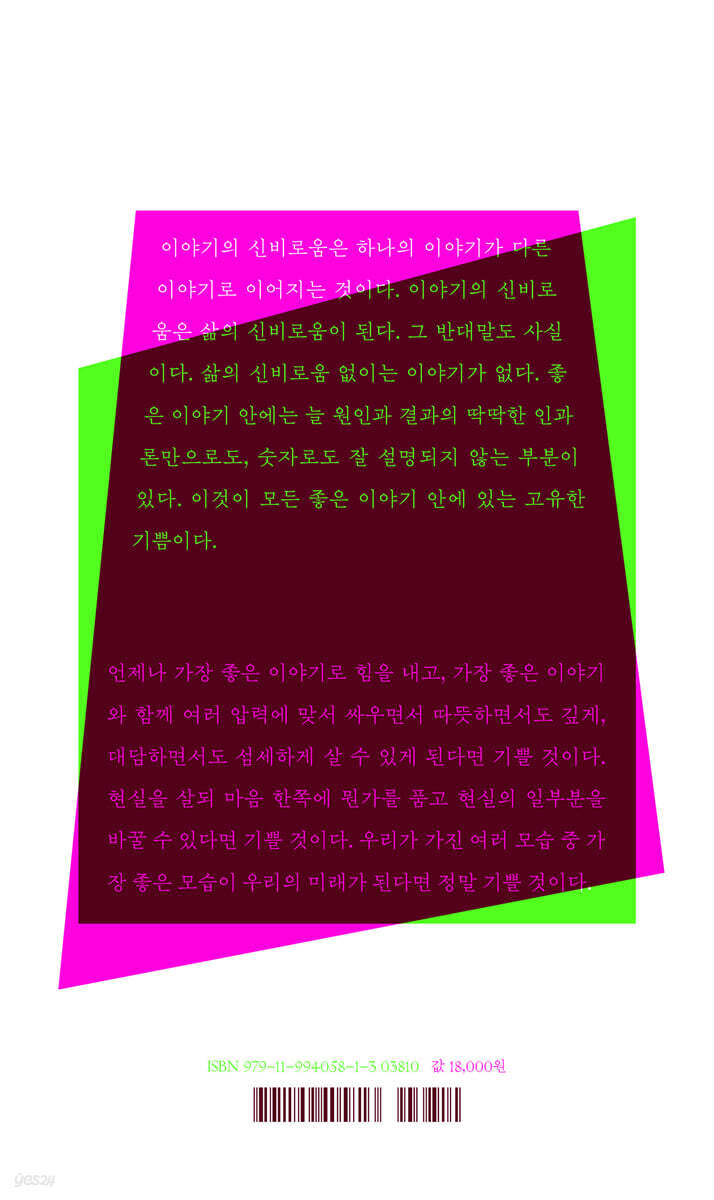 이야기의 신비로움은 하나의 이야기가 다른
이야기로 이어지는 것이다. 이야기의 신비로
움은 삶의 신비로움이 된다. 그 반대말도 사실
이다. 삶의 신비로움 없이는 이야기가 없다. 좋
은 이야기 안에는 늘 원인과 결과의 딱딱한 인과
론만으로도, 숫자로도 잘 설명되지 않는 부분이
있다. 이것이 모든 좋은 이야기 안에 있는 고유한
기쁨이다.
언제나 가장 좋은 이야기로 힘을 내고, 가장 좋은 이야기
와 함께 여러 압력에 맞서 싸우면서 따뜻하면서도 깊게,
대담하면서도 섬세하게 살 수 있게 된다면 기쁠 것이다.
현실을 살되 마음 한쪽에 뭔가를 품고 현실의 일부분을
바꿀 수 있다면 기쁠 것이다. 우리가 가진 여러 모습 중 가
장 좋은 모습이 우리의 미래가 된다면 정말 기쁠 것이다.
ISBN 979-11-994058-1-3 03810 값 18,000원
yes24